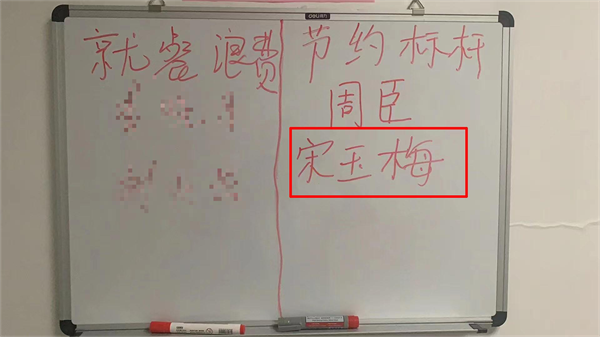 deli
就餐浪费
节约标杆
周臣
宋玉梅